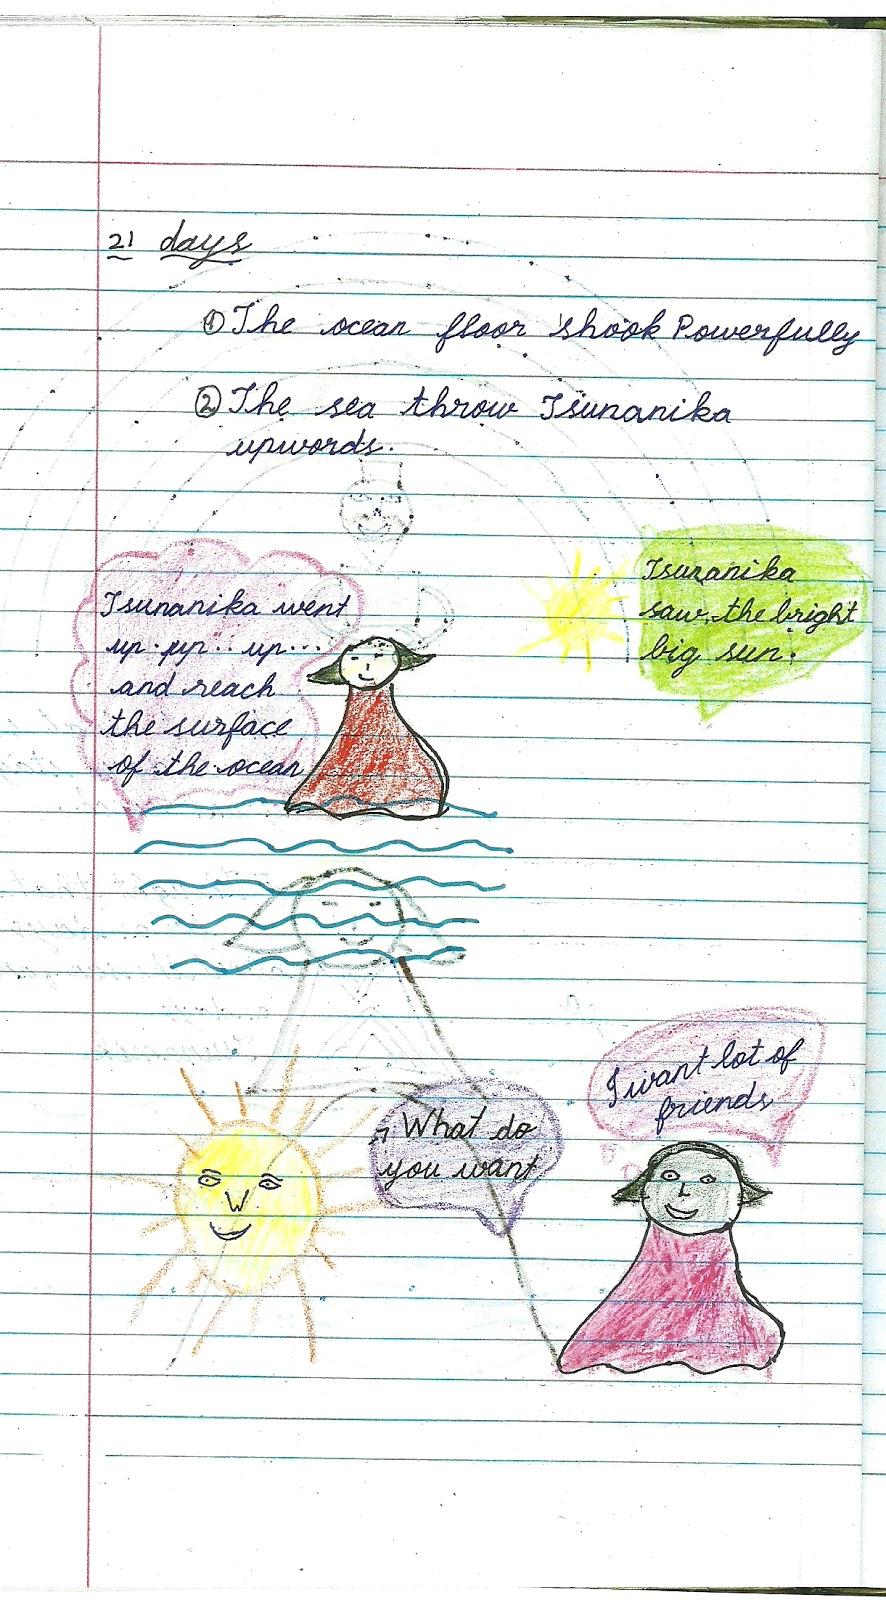 21 days
① The ocean floor shook Powerfully
② The sea throw Tsunanika
upwords.
Tsunanika went
up.up.. up...
and reach
the surface
of the ocean
Tsunanika
saw the bright
big sun.
I want lot of
friends
What do
you want